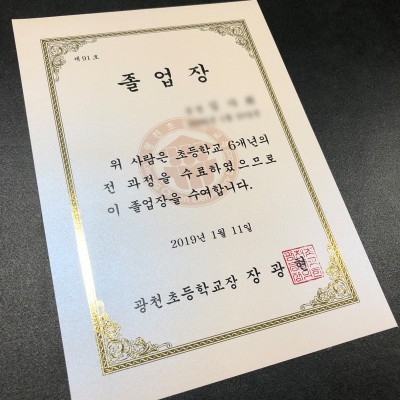 제 91 호
졸 업 장
위 사람은 초등학교 6개년의
전 과정을 수료하였으므로
이 졸업장을 수여합니다.
2019년 1월 11일
광천초등학교장 장 광 현